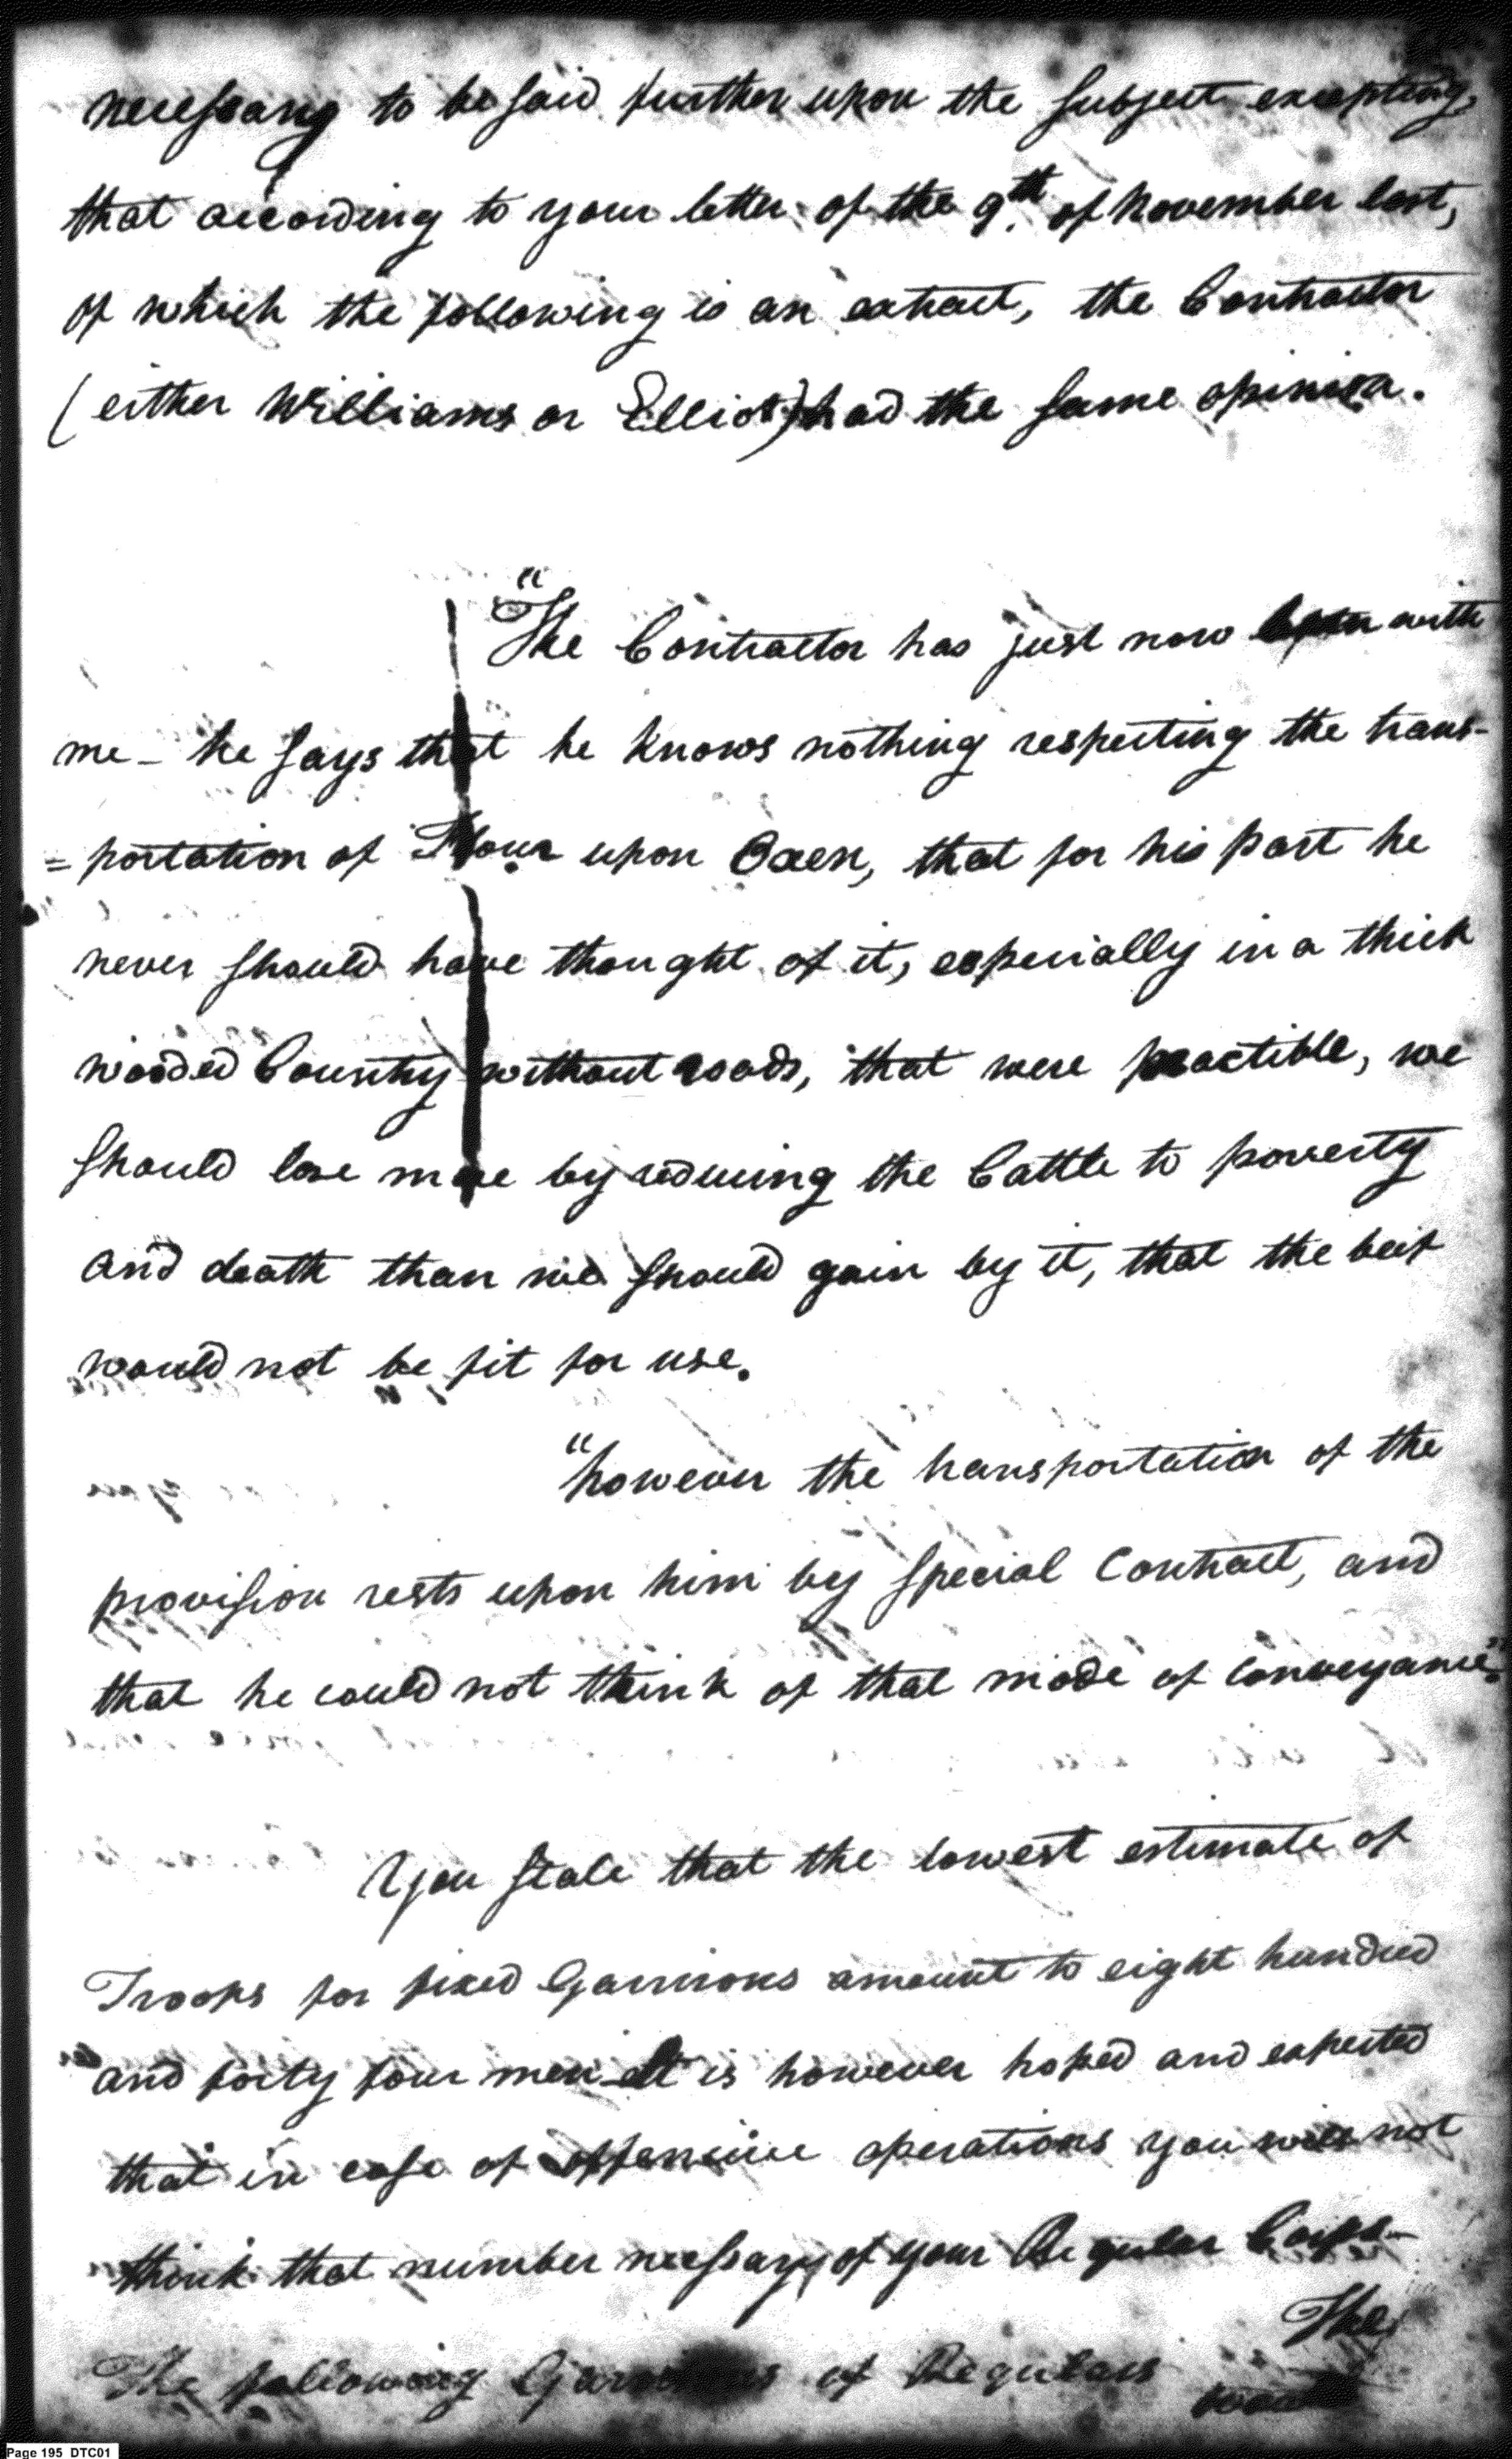 necessary to be said further upon the subject excepting,
that according to your letter of the 9th. of November last,
of which the following is an extract, the Contractor
(either Williams or Elliot) had the same opinion.
"The Contractor has just now been with
me – he says that he knows nothing respecting the trans-
=portation of Flour upon Oxen, that for his part he
never should have thought of it, especially in a thick
wooded Country without roads, that were practible, we
should lose more by reducing the Cattle to poverty
and death than we should gain by it, that the beef
would not be fit for use.
"however the transportation of the
provision rests upon him by special Contract, and
that he could not think of that mode of conveyance."
You state that the lowest estimate of
Troops for fixed Garrisons amount to eight hundred
and forty four men It is however hoped and expected
that in case of offensive operations you will not
think that number necessary of your Regular Corps –
The
The following Garrisons of Regulars
Page 195 DTC01